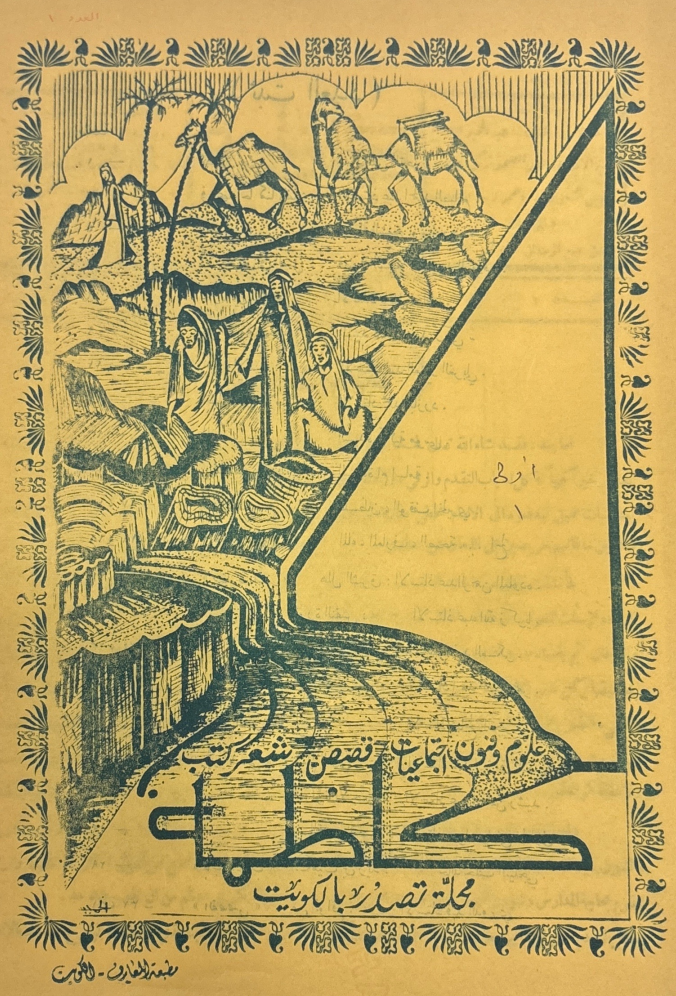 العدد ١
أولى
١
علوم وفنون اجتماعيات قصص شعر كتب
كاظمة
مجلة تصدر بالكويت
مطبعة المعارف - الكويت